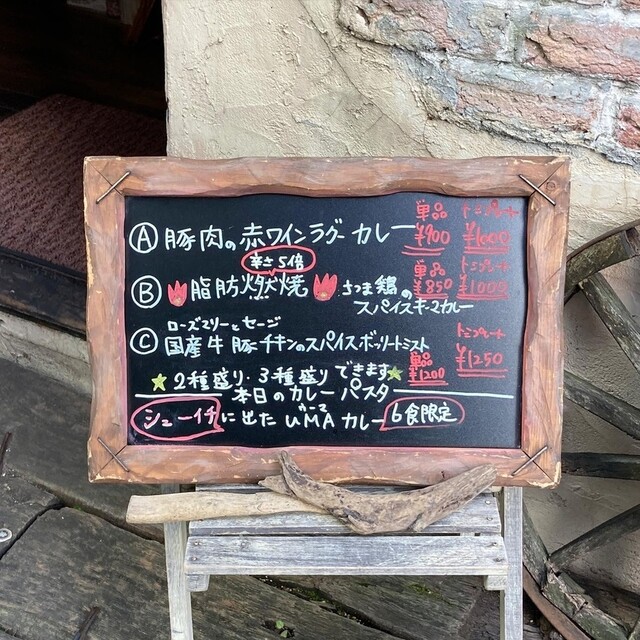 Ⓐ 豚肉の赤ワインラグーカレー 単品 ¥900 トニプレート ¥1000
辛さ5倍
Ⓑ 脂肪燃焼 さつま鶏の 単品 ¥850 トニプレート ¥1000
スパイスキーマカレー
ローズマリーとセージ
Ⓒ 国産牛豚チキンのスパイスボッリートミスト 単品 ¥1200 トニプレート ¥1250
★2種盛り・3種盛りできます★
本日のカレーパスタ
シューイチに出たUMAカレー 6食限定